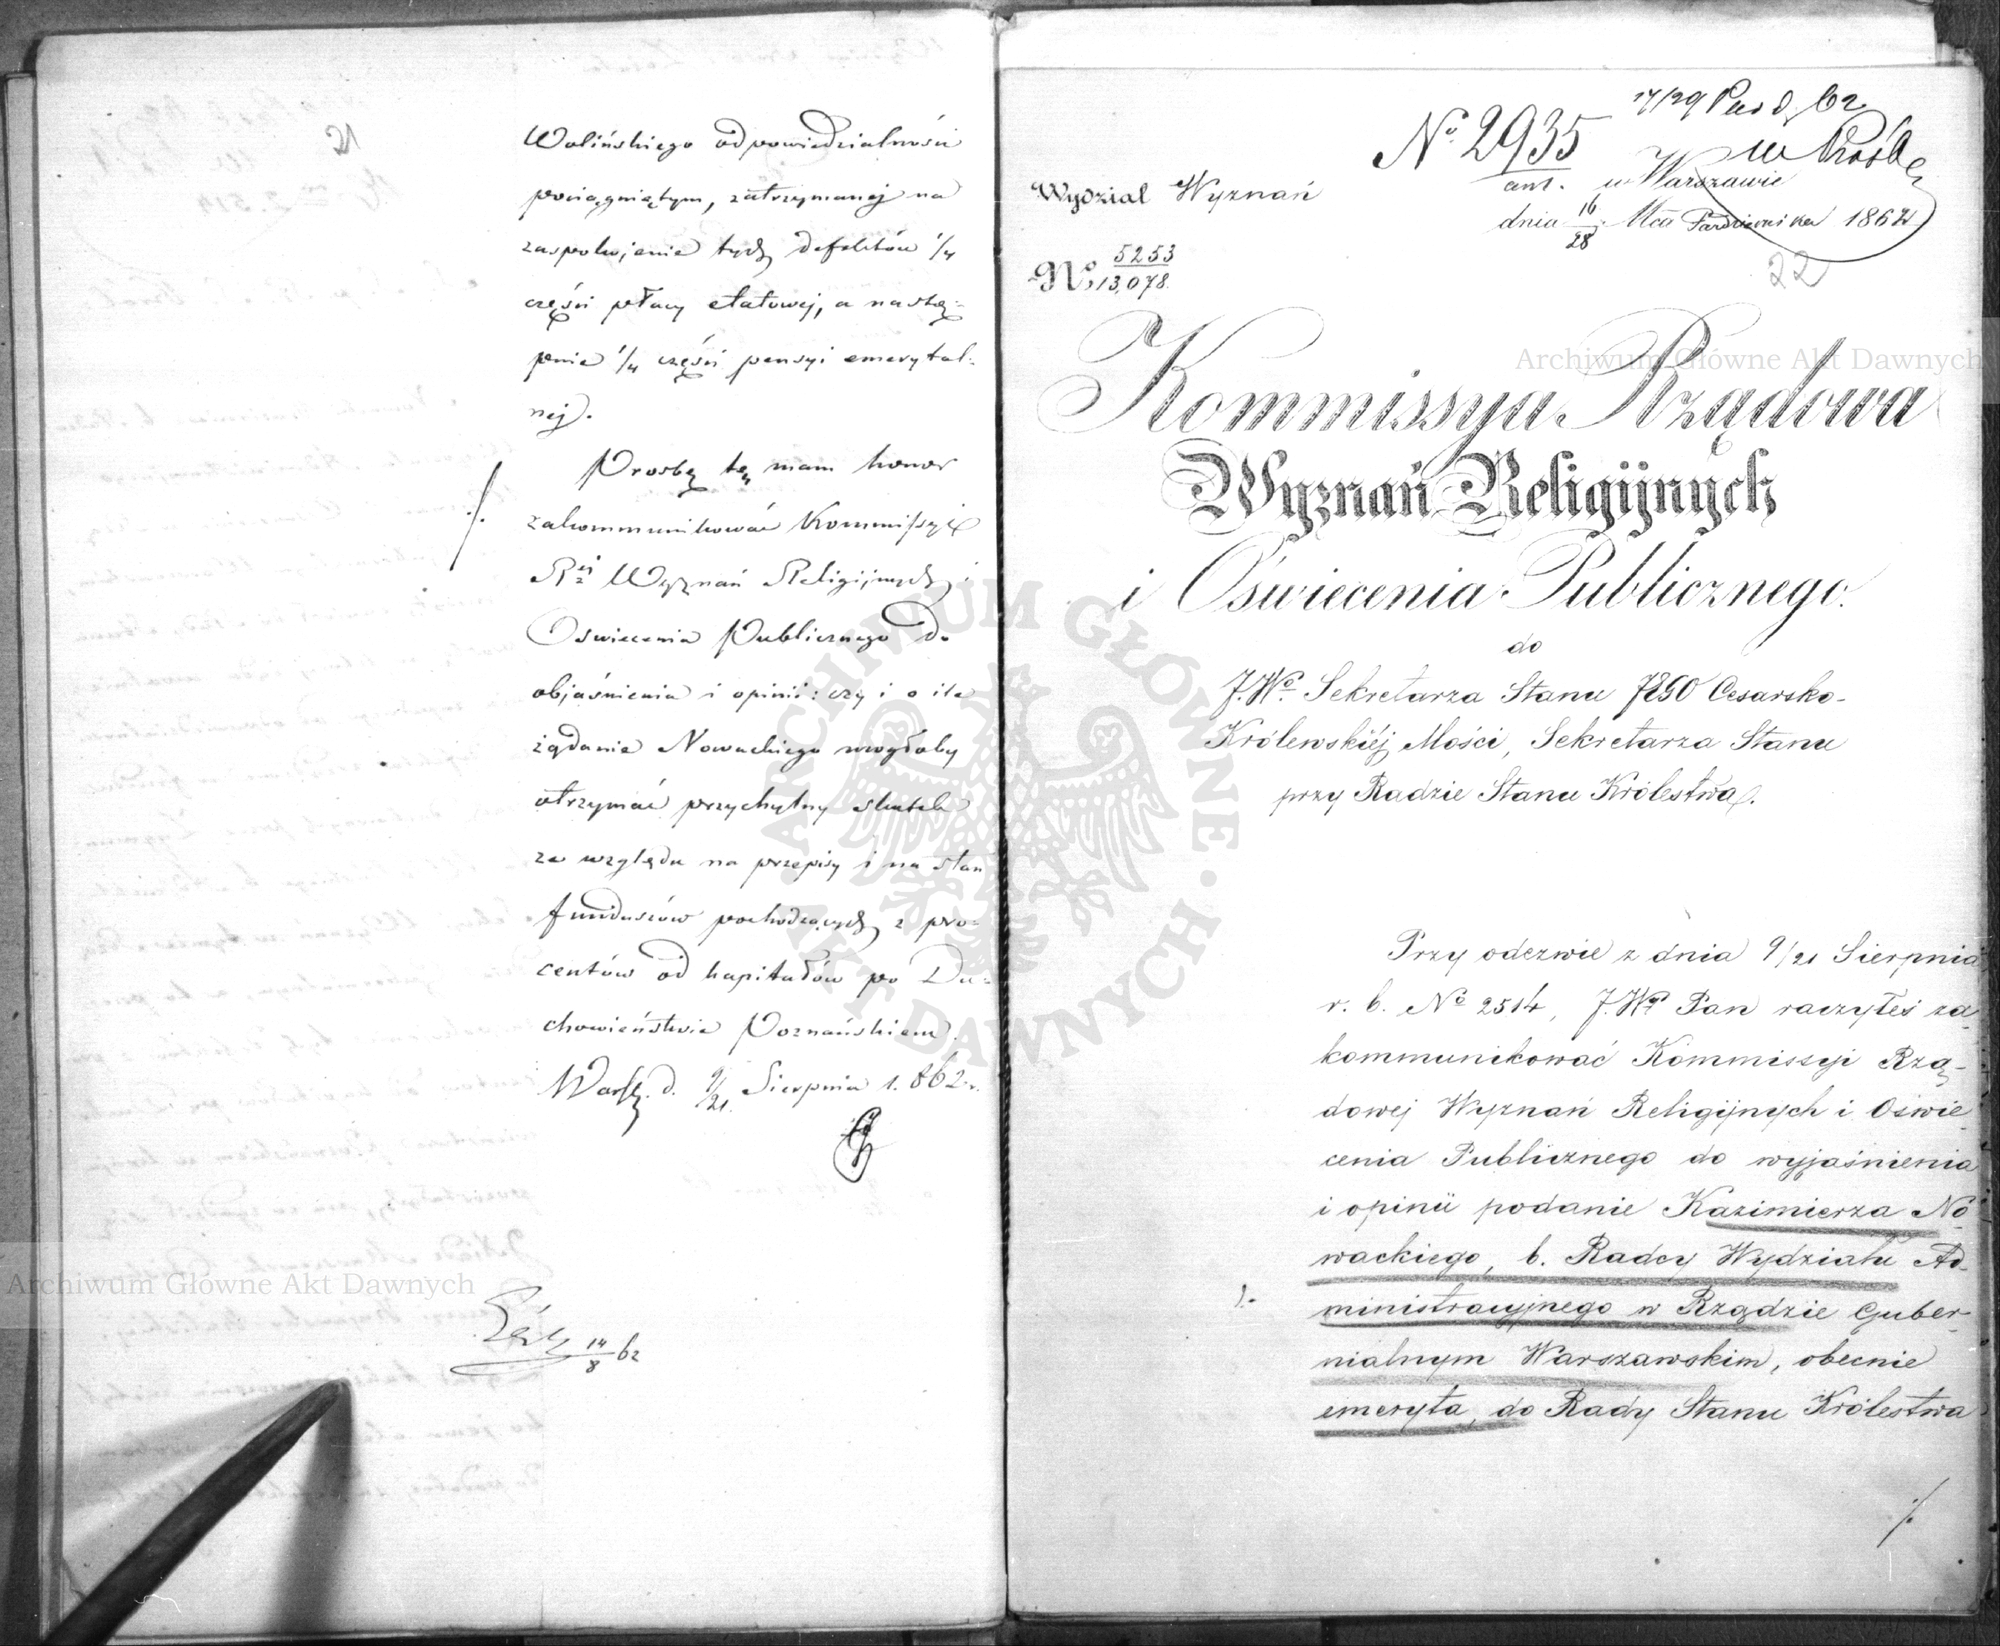 21
Wolińskiego odpowiedzialności
pociągniętym, zatrzymanej na
zaspokojenie tych defektów 1/4
części płacy etatowej, a nastę-
pnie 1/4 części pensyi emerytal-
nej.
Prośbę tę mam honor
zakommunikować Kommissyi
Rz. Wyznań Religijnych i
Oświecenia Publicznego do
objaśnienia i opinii: czy i o ile
żądanie Nowackiego mogłoby
otrzymać przychylny skutek
ze względu na przepisy i na stan
funduszów pochodzących z pro-
centów od kapitałów po Du-
chowieństwie Poznańskiem.
Warsz. d. 9/21 Sierpnia 1.862 r.
14/8 62
17/29 Paźd. 62
No 2935
w Warszawie
Wydział Wyznań
dnia 16/28 Mca Października 1862
No 5253/13,078.
22
Kommissya Rządowa
Wyznań Religijnych
i Oświecenia Publicznego.
do
J.Wo. Sekretarza Stanu JEGO Cesarsko-
Królewskiéj Mości, Sekretarza Stanu
przy Radzie Stanu Królestwa.
Przy odezwie z dnia 9/21 Sierpnia
r. b. No 2514, J.W. Pan raczyłeś za-
kommunikować Kommissyi Rzą-
dowej Wyznań Religijnych i Oświe-
cenia Publicznego do wyjaśnienia
i opinii podanie Kazimierza No-
wackiego, b. Radcy Wydziału Ad-
ministracyjnego w Rządzie Guber-
nialnym Warszawskim, obecnie
emeryta, do Rady Stanu Królestwa
Archiwum Główne Akt Dawnych
Archiwum Główne Akt Dawnych
ARCHIWUM GŁÓWNE AKT DAWNYCH